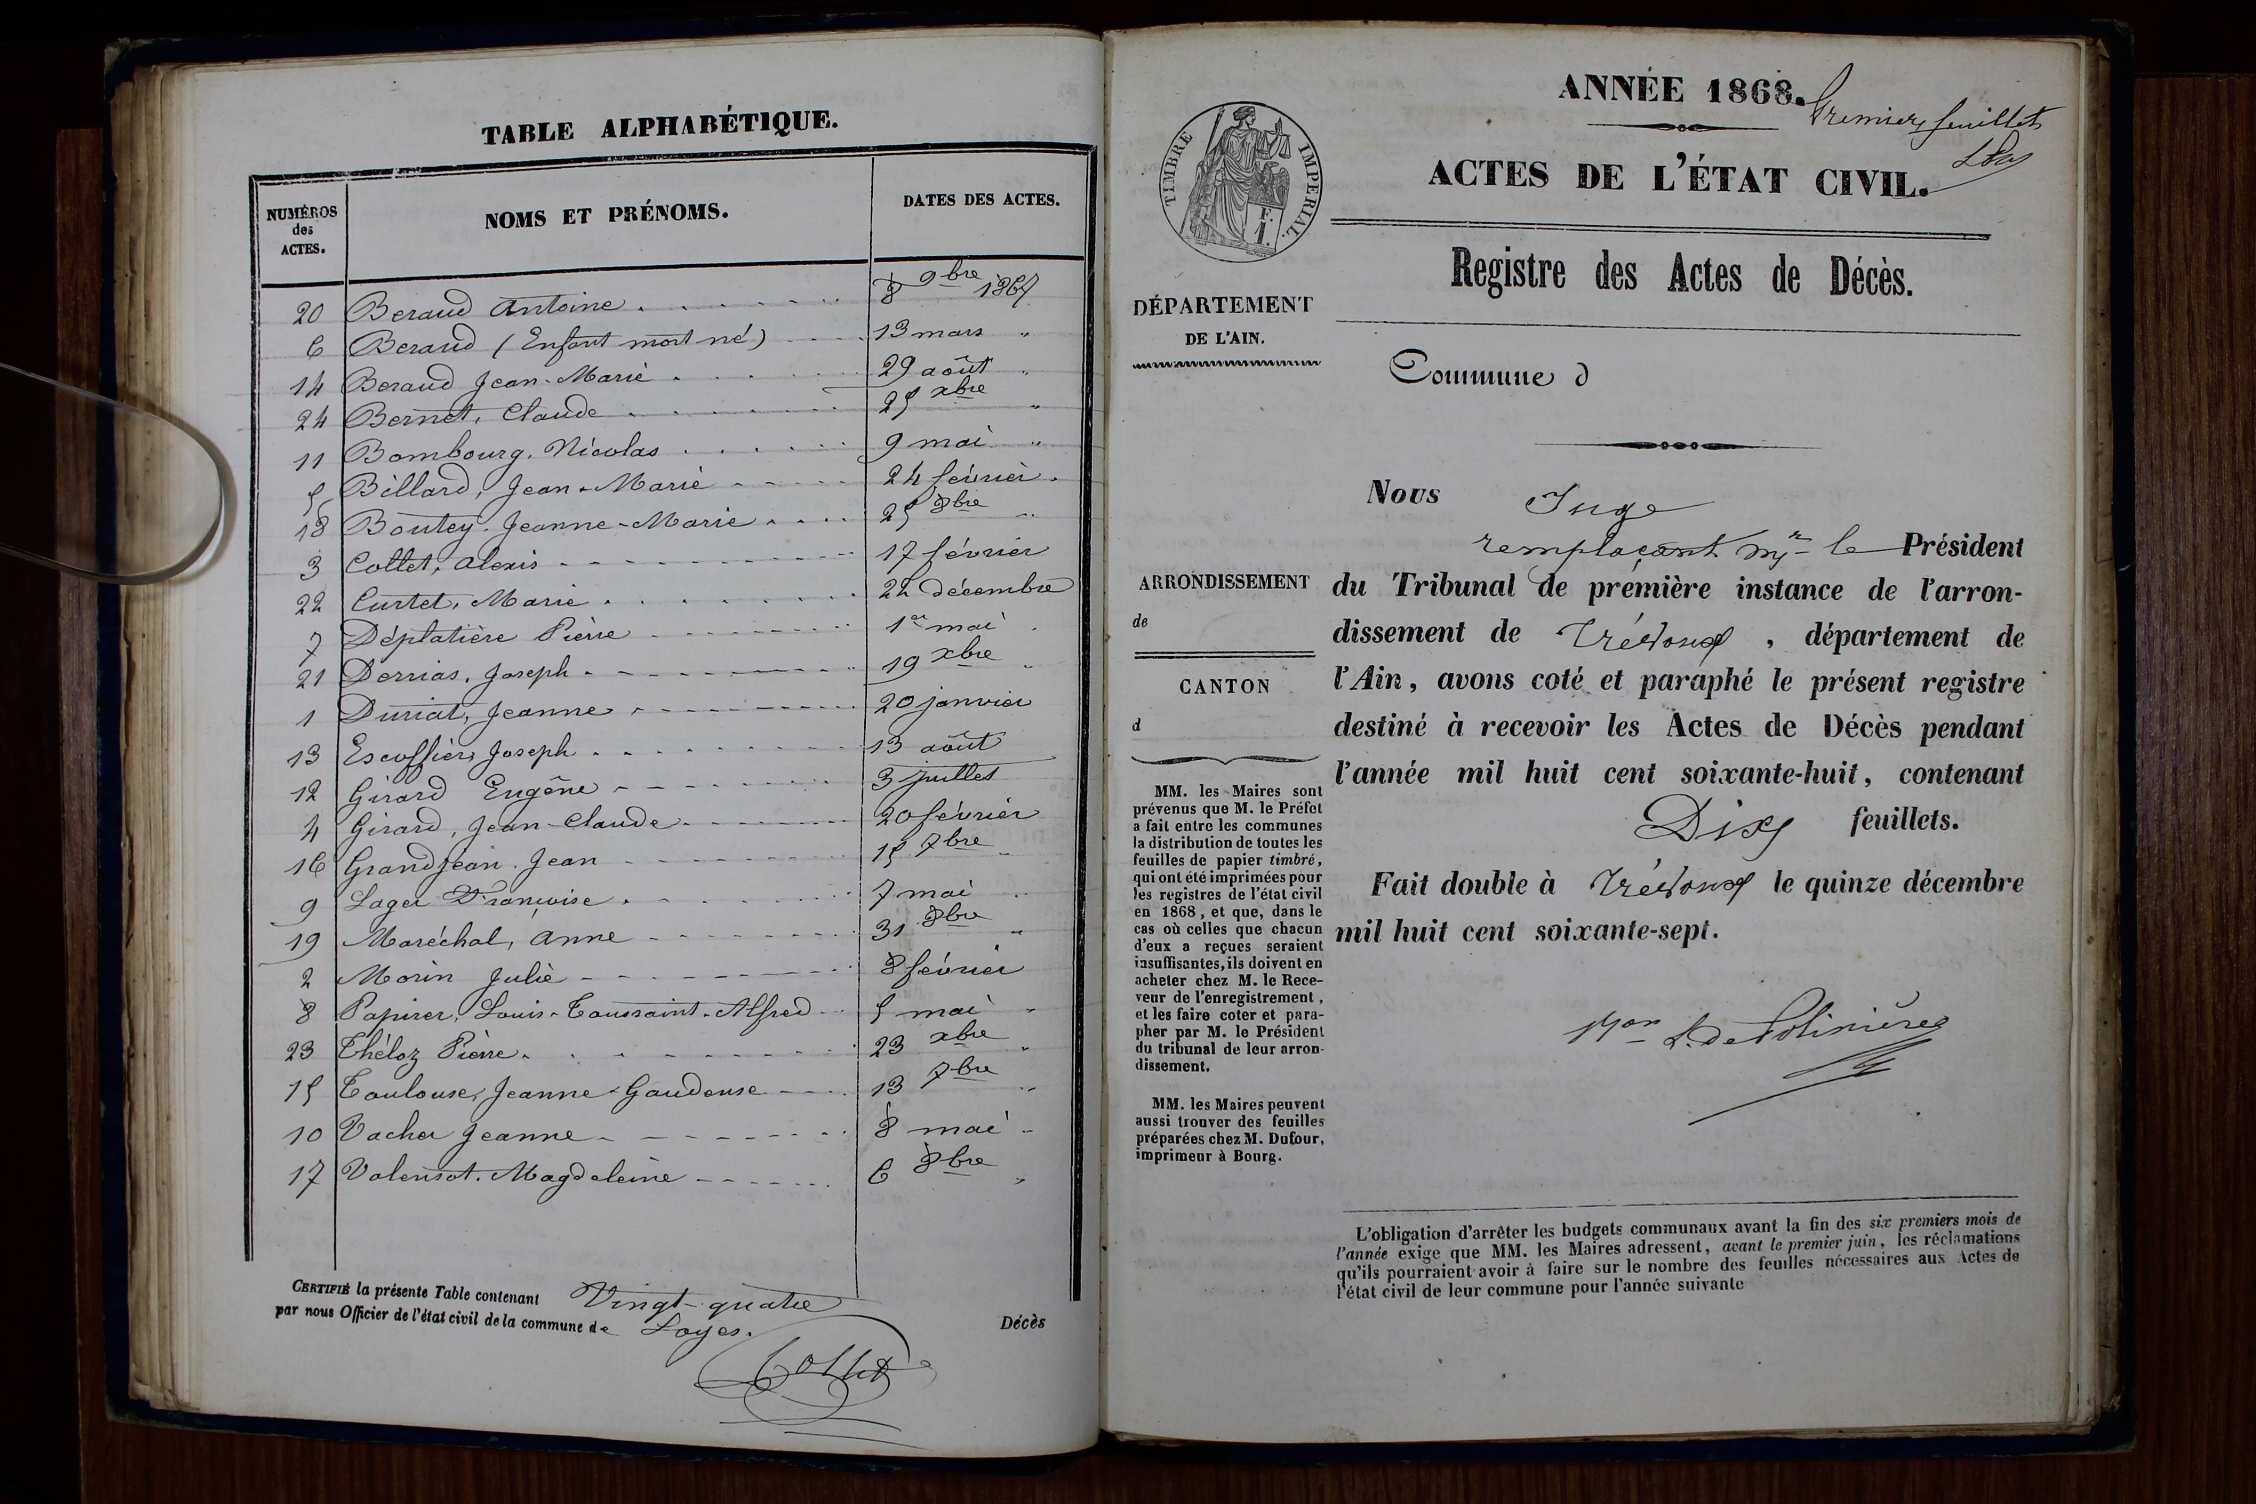 TABLE ALPHABÉTIQUE.
NUMÉROS des ACTES. NOMS ET PRÉNOMS. DATES DES ACTES.
20 Beraud Antoine 8 9bre 1867
6 Beraud (Enfant mort né) 13 mars "
14 Beraud Jean-Marie 29 août "
24 Bernet, Claude 25 xbre "
11 Bombourg, Nicolas 9 mai "
5 Billard, Jean-Marie 24 février "
18 Boutey, Jeanne-Marie 25 8bre "
3 Collet, Alexis 17 février
22 Curtet, Marie 22 décembre
7 Déplatière Pierre 1er mai
21 Derrias, Joseph 19 xbre "
1 Duriat, Jeanne 20 janvier
13 Escoffier, Joseph 13 août
12 Girard Eugène 3 juillet
4 Girard, Jean-Claude 20 février
16 Grandjean, Jean 15 7bre "
9 Lager Françoise 7 mai "
19 Maréchal, Anne 31 8bre "
2 Morin Julie 8 février
8 Papirer, Louis-Toussaint-Alfred 5 mai "
23 Théloz Pierre 23 xbre "
15 Toulouse, Jeanne-Gaudense 13 7bre "
10 Vacher Jeanne 8 mai "
17 Valensot, Magdeleine 6 8bre "
CERTIFIÉ la présente Table contenant Vingt-quatre Décès
par nous Officier de l'état civil de la commune de Loyes.
Collet
ANNÉE 1868.
Premier feuillet
ACTES DE L'ÉTAT CIVIL.
TIMBRE IMPÉRIAL.
Registre des Actes de Décès.
DÉPARTEMENT
DE L'AIN.
Commune d
Nous Juge
remplaçant Mr le Président
ARRONDISSEMENT
de
CANTON
d
du Tribunal de première instance de l'arron-
dissement de Trévoux, département de
l'Ain, avons coté et paraphé le présent registre
destiné à recevoir les Actes de Décès pendant
l'année mil huit cent soixante-huit, contenant
Dix feuillets.
Fait double à Trévoux le quinze décembre
mil huit cent soixante-sept.
MM. les Maires sont
prévenus que M. le Préfet
a fait entre les communes
la distribution de toutes les
feuilles de papier timbré,
qui ont été imprimées pour
les registres de l'état civil
en 1868, et que, dans le
cas où celles que chacun
d'eux a reçues seraient
insuffisantes, ils doivent en
acheter chez M. le Rece-
veur de l'enregistrement,
et les faire coter et para-
pher par M. le Président
du tribunal de leur arron-
dissement.
MM. les Maires peuvent
aussi trouver des feuilles
préparées chez M. Dufour,
imprimeur à Bourg.
L'obligation d'arrêter les budgets communaux avant la fin des six premiers mois de
l'année exige que MM. les Maires adressent, avant le premier juin, les réclamations
qu'ils pourraient avoir à faire sur le nombre des feuilles nécessaires aux Actes de
l'état civil de leur commune pour l'année suivante